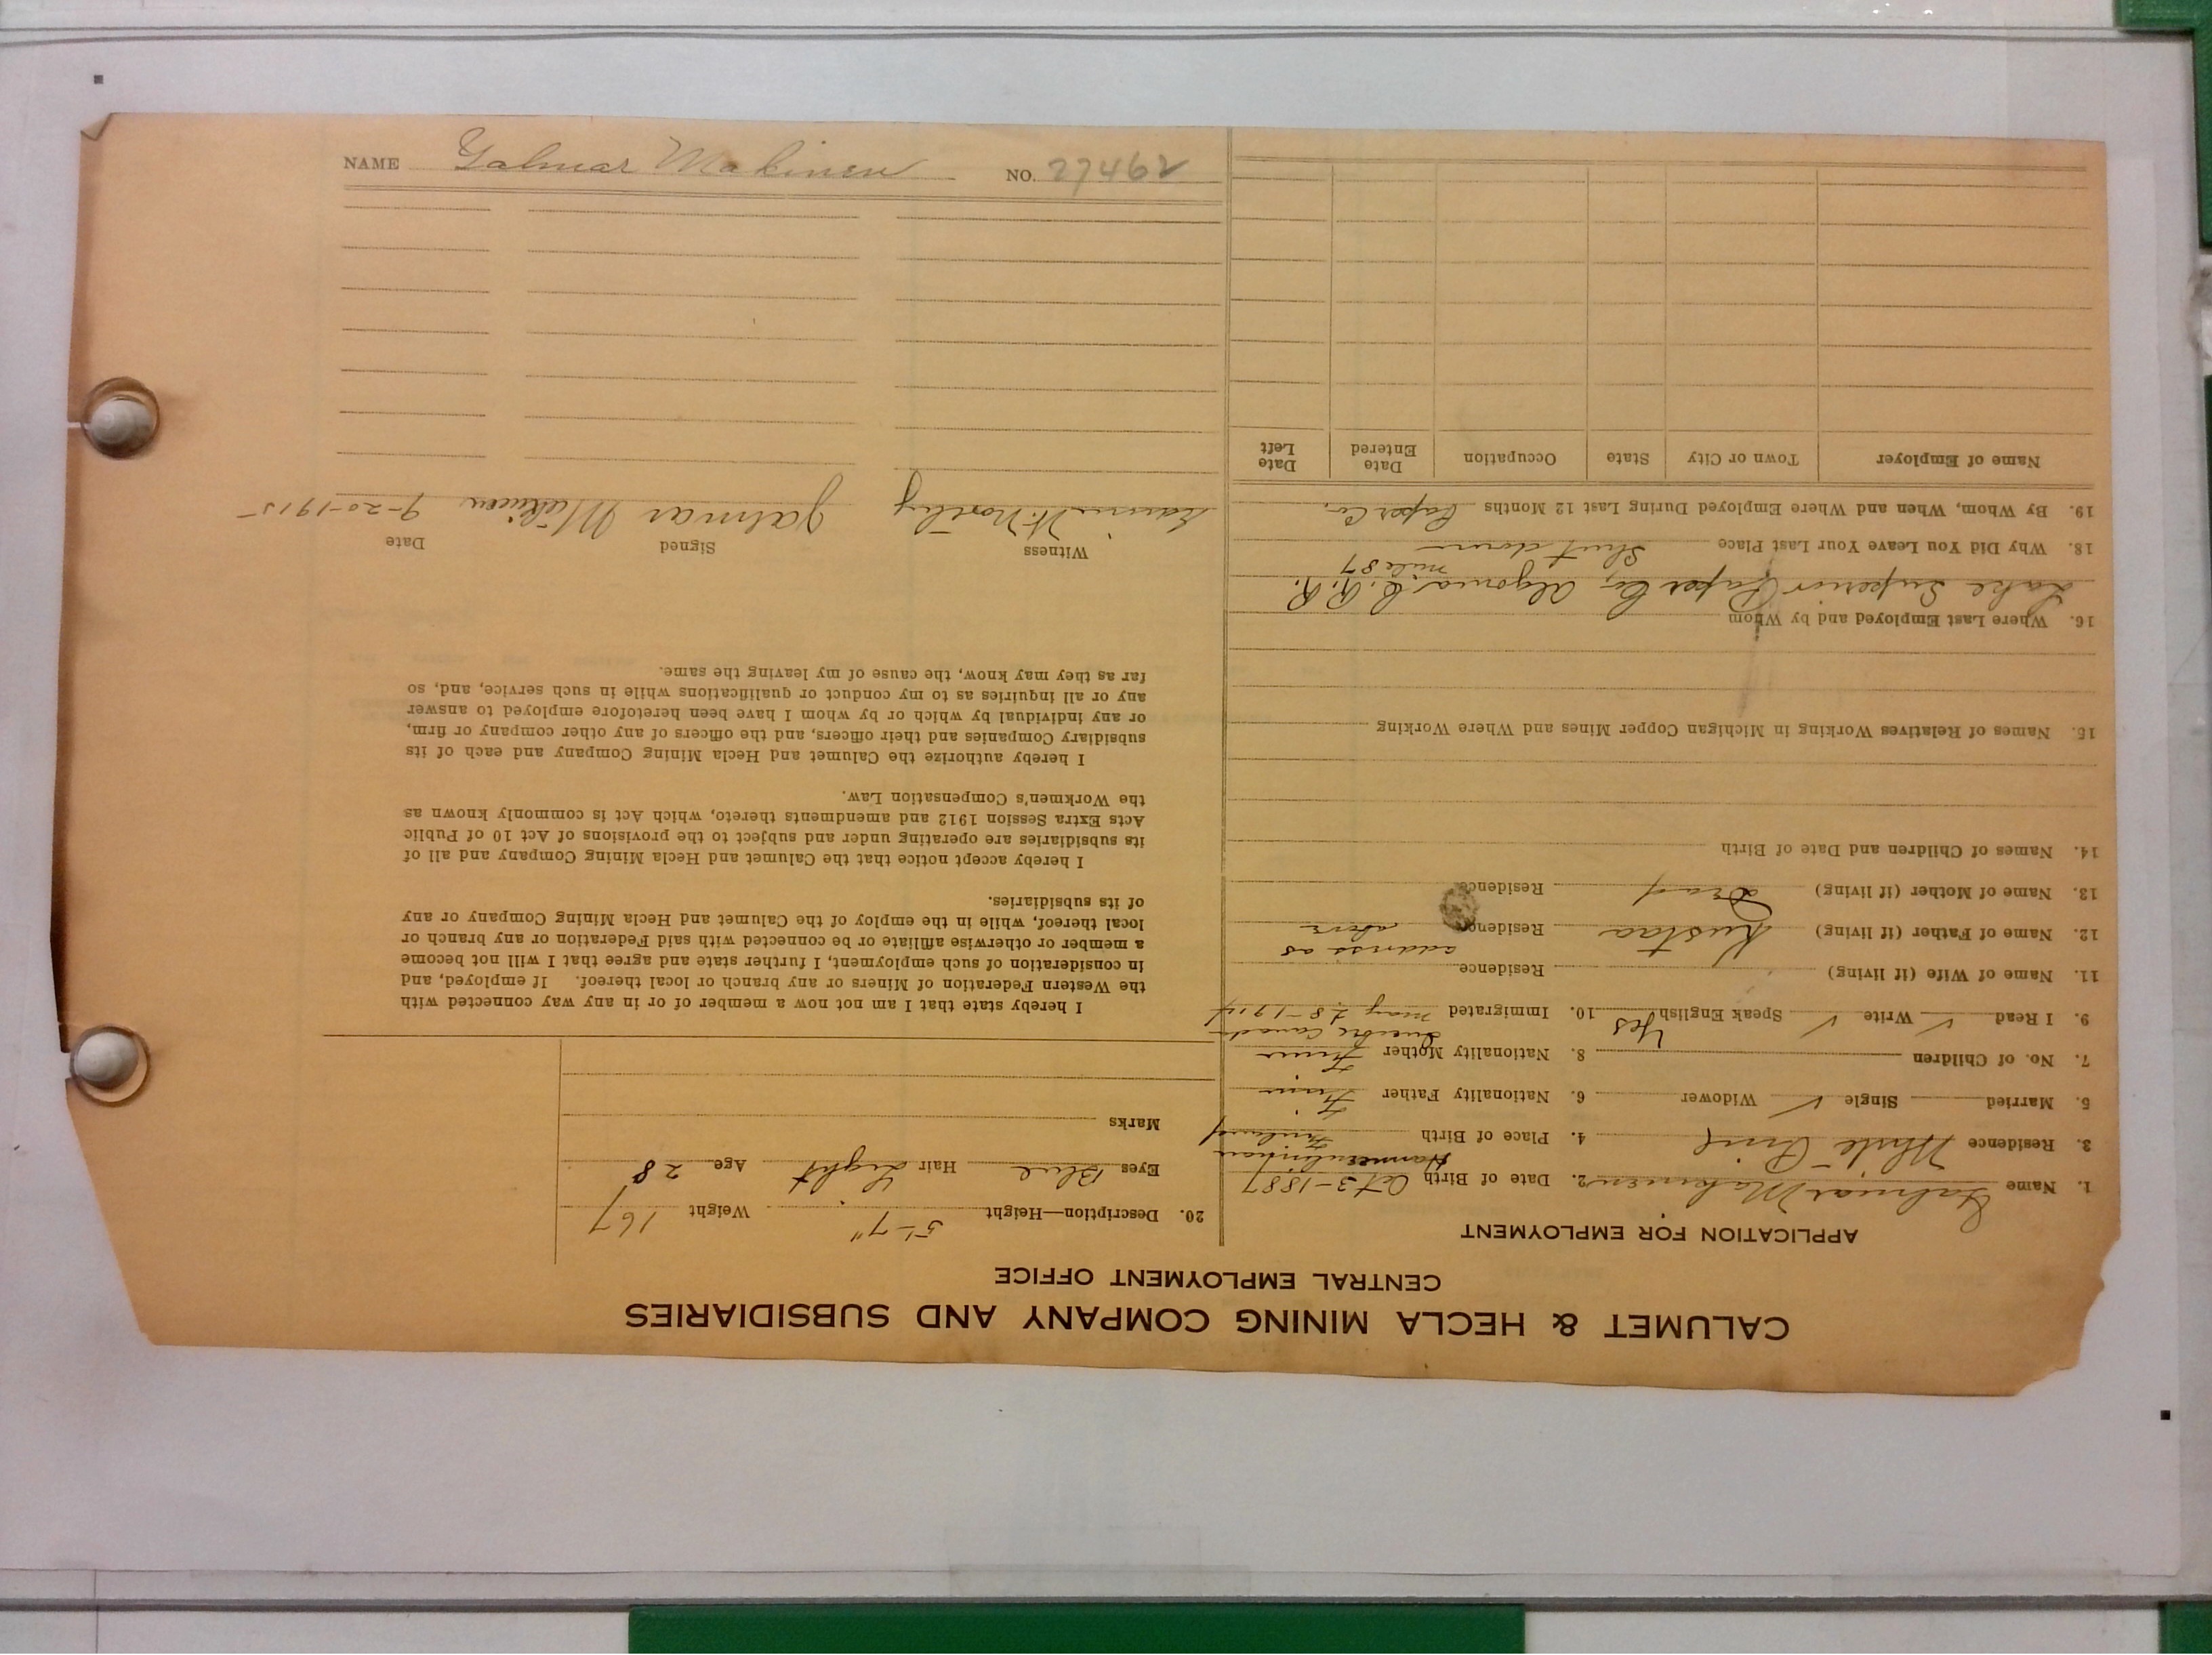 CALUMET & HECLA MINING COMPANY AND SUBSIDIARIES
CENTRAL EMPLOYMENT OFFICE
APPLICATION FOR EMPLOYMENT
1. Name Yalmar Makinen 2. Date of Birth Oct 3-1887
3. Residence White Pine 4. Place of Birth Finland
5. Married Single ✓ Widower 6. Nationality Father Finn
7. No. of Children 8. Nationality Mother Finn
9. I Read ✓ Write ✓ Speak English Yes 10. Immigrated May 28-1914
11. Name of Wife (if living) Residence
12. Name of Father (if living) Kustaa Residence address as above
13. Name of Mother (if living) Dead Residence
14. Names of Children and Date of Birth
15. Names of Relatives Working in Michigan Copper Mines and Where Working
16. Where Last Employed and by Whom
Lake Superior Paper Co, Algoma C. R.R.
mile 87
18. Why Did You Leave Your Last Place Shut down
19. By Whom, When and Where Employed During Last 12 Months Paper Co.
Name of Employer Town or City State Occupation Date Entered Date Left
20. Description—Height 5'-7" Weight 167
Eyes Blue Hair Light Age 28
Marks
I hereby state that I am not now a member of or in any way connected with
the Western Federation of Miners or any branch or local thereof. If employed, and
in consideration of such employment, I further state and agree that I will not become
a member or otherwise affiliate or be connected with said Federation or any branch or
local thereof, while in the employ of the Calumet and Hecla Mining Company or any
of its subsidiaries.
I hereby accept notice that the Calumet and Hecla Mining Company and all of
its subsidiaries are operating under and subject to the provisions of Act 10 of Public
Acts Extra Session 1912 and amendments thereto, which Act is commonly known as
the Workmen's Compensation Law.
I hereby authorize the Calumet and Hecla Mining Company and each of its
subsidiary Companies and their officers, and the officers of any other company or firm,
or any individual by which or by whom I have been heretofore employed to answer
any or all inquiries as to my conduct or qualifications while in such service, and, so
far as they may know, the cause of my leaving the same.
Witness Signed Date
Jalmar Mäkinen 9-20-1915
NAME Yalmar Makinen NO. 27462